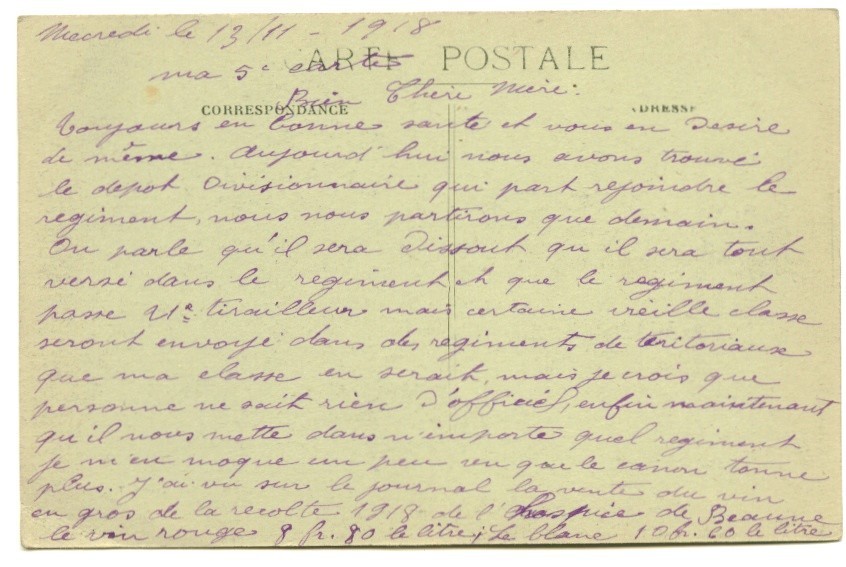 Mecredi le 13/11 - 1918
CARTE POSTALE
ma 5e carte
CORRESPONDANCE
Bien Chere Mere:
ADRESSE
Toujours en bonne sante et vous en desire
de même. Aujourd'hui nous avons trouvé
le depot Divisionnaire qui part rejoindre le
regiment, nous nous partirons que demain.
On parle qu'il sera dissout qu il sera tout
versé dans le regiment et que le regiment
passe 21e tirailleur mais certaine vieille classe
seront envoyé dans des regiments de teritoriaux
que ma classe en serait, mais je crois que
personne ne sait rien d'officiel, enfin maintenant
qu'il nous mette dans n'importe quel regiment
je m'en moque un peu vu que le canon tonne
plus. J'ai vu sur le journal la vente du vin
en gros de la recolte 1918 de l'Hospice de Beaune
le vin rouge 8 fr. 80 le litre, le blanc 10 fr. 60 le litre